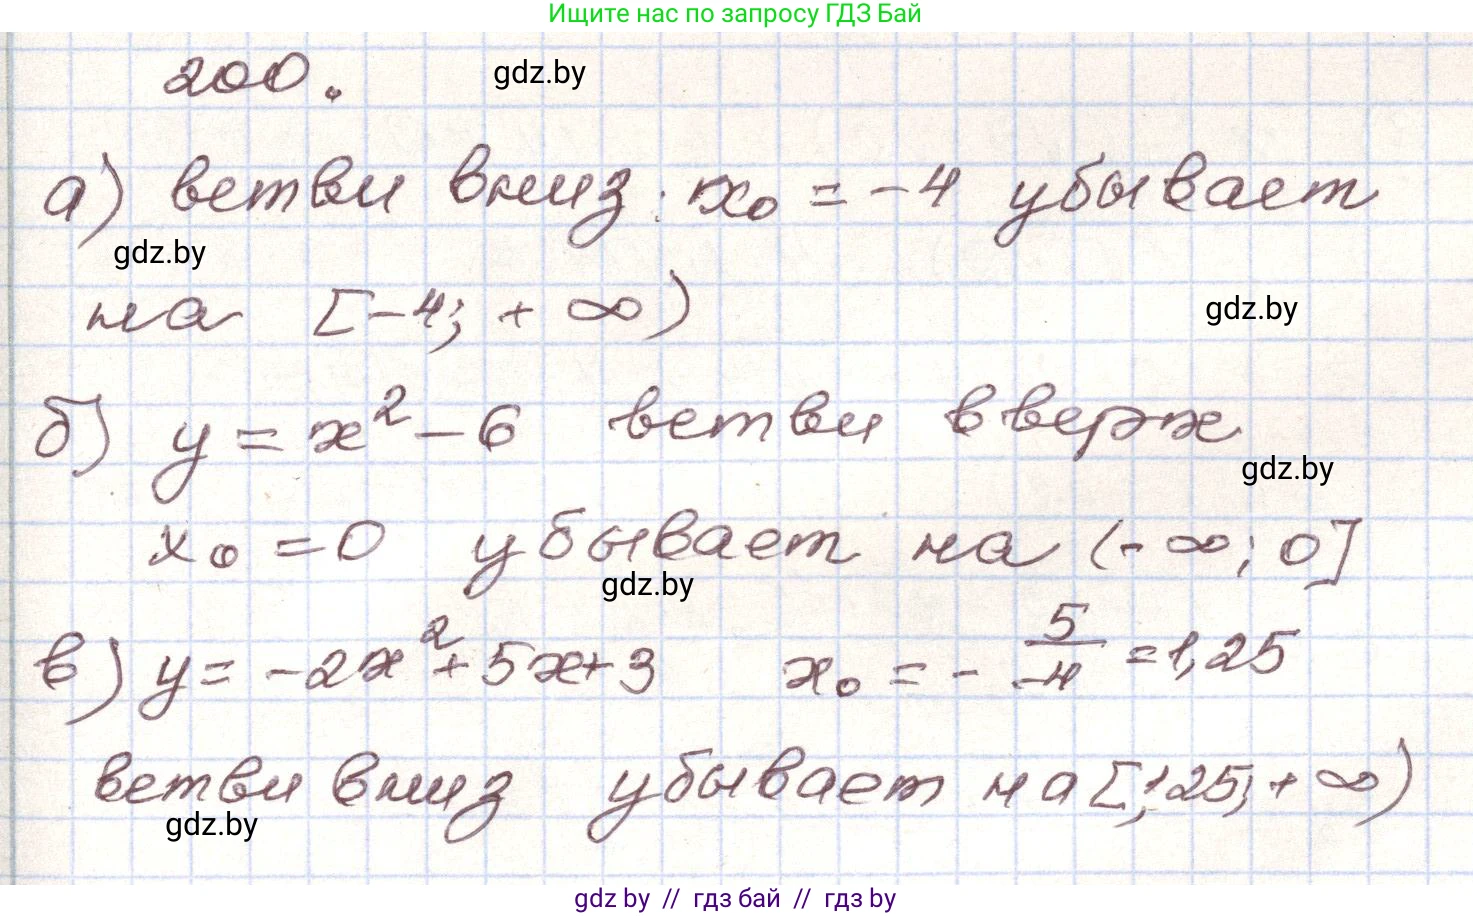 Ищите нас по запросу ГДЗ Бай
200.
gdz.by
а) ветви вниз. x₀ = -4 убывает
gdz.by
на [-4; + ∞)
gdz.by
б) y = x² - 6 ветви вверх
gdz.by
x₀ = 0 убывает на (-∞; 0]
gdz.by
в) y = -2x² + 5x + 3 x₀ = - 5/-4 = 1,25
ветви вниз убывает на [1,25; + ∞)
gdz.by
gdz by // гдз бай // гдз by